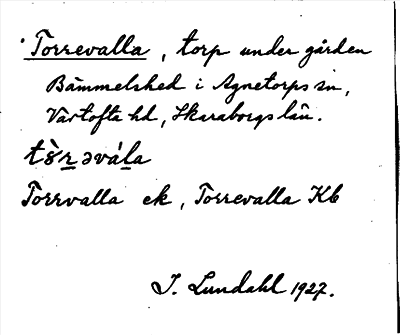 Torrevalla, torp under gården
Bämmelshed i Agnetorps sn,
Vartofta hd, Skaraborgs län.
tòr̲əvál̲a
Torrvalla ek, Torrevalla Kb
I. Lundahl 1927.